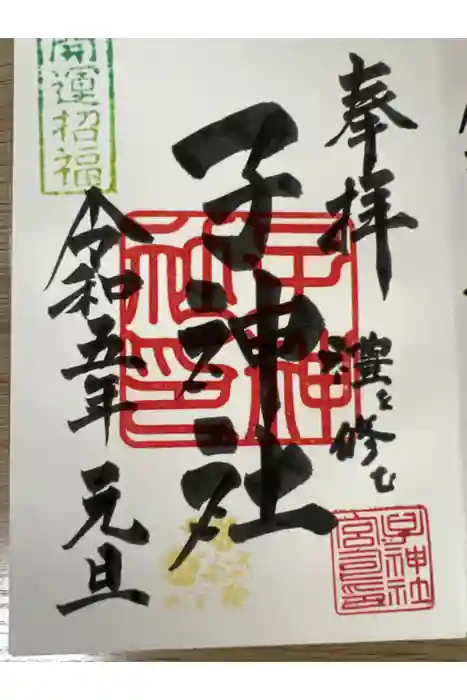 奉拝
禮を修む
子神社
子神社印
子神社
宮司印
開運招福
令和五年 元旦